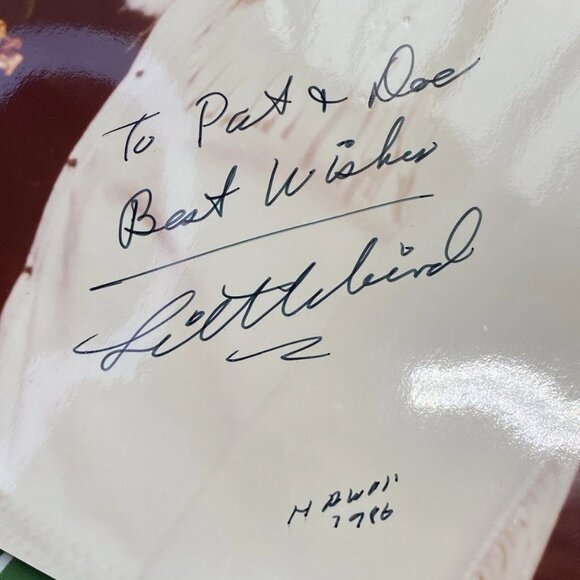 To Pat & Doc
Best Wishes
Littlebird
HAWAII
1996